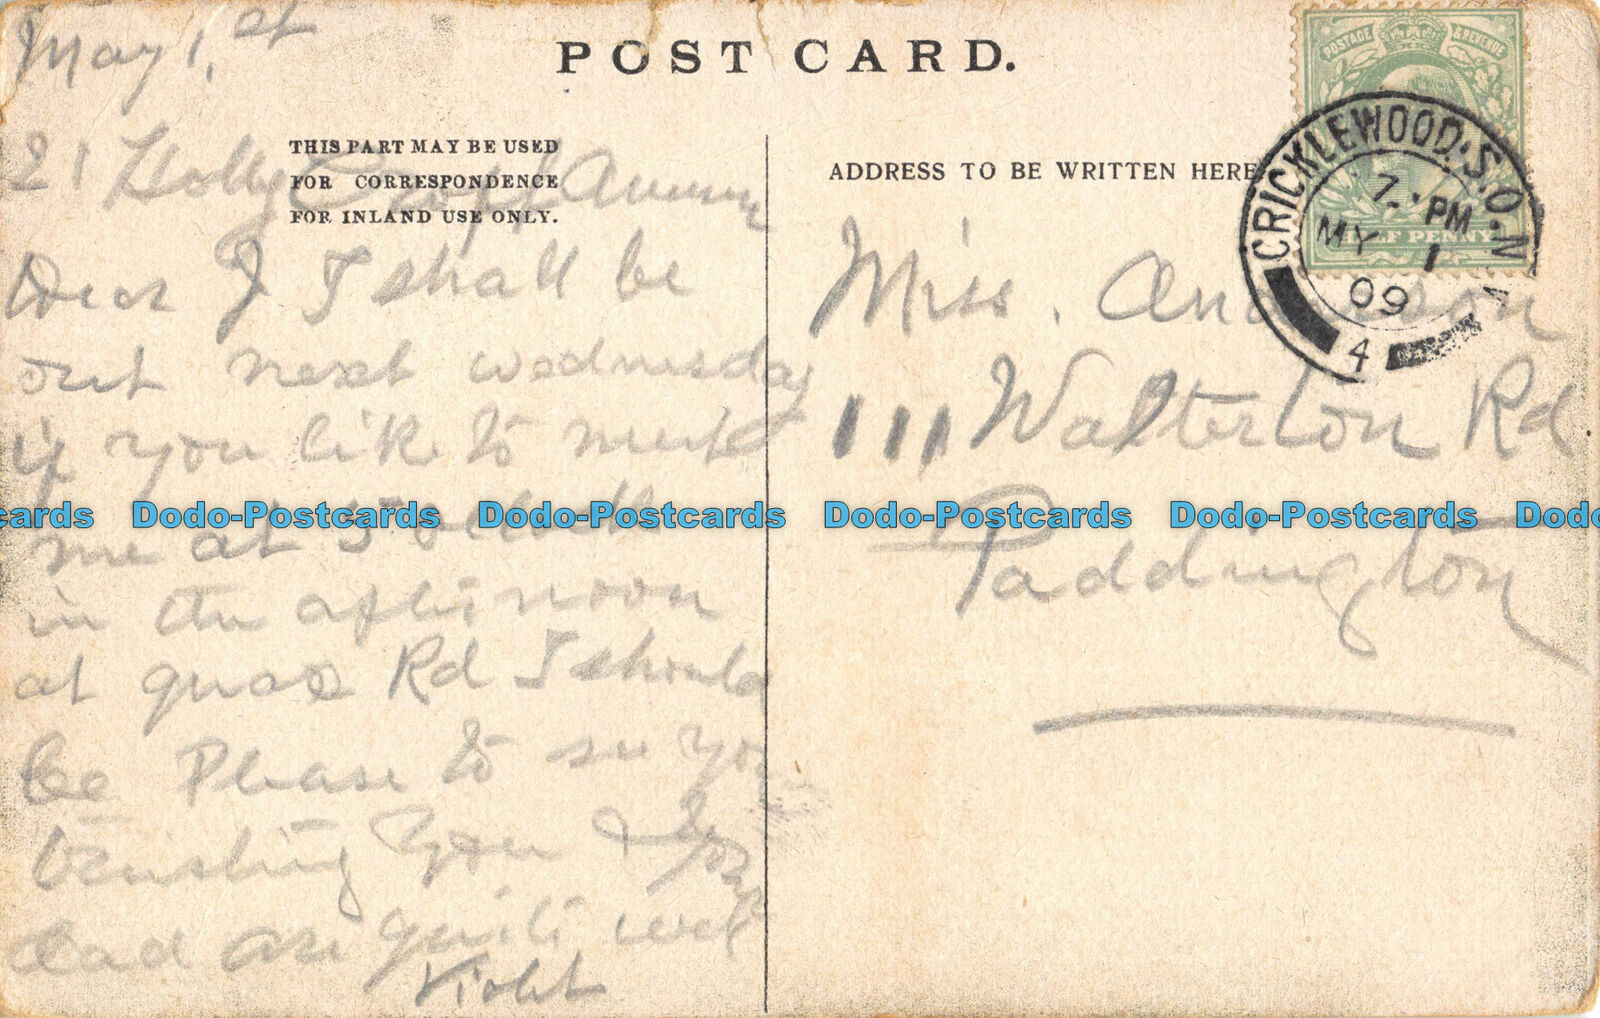 May 1, st
POST CARD.
THIS PART MAY BE USED
FOR CORRESPONDENCE
FOR INLAND USE ONLY.
21 Holly Croft Avenue
Dear J I shall be
out next wednesday
if you like to meet
me at 5 oclock
in the afternoon
at quex Rd I should
be Please to see you
trusting you & your
dad are quite well
Violet
ADDRESS TO BE WRITTEN HERE
Miss. Anderson
111 Walterton Rd
Paddington
POSTAGE & REVENUE
HALF PENNY
CRICKLEWOOD. S.O. N
7. PM
MY 1
09
4
cards Dodo-Postcards Dodo-Postcards Dodo-Postcards Dodo-Postcards Dodo